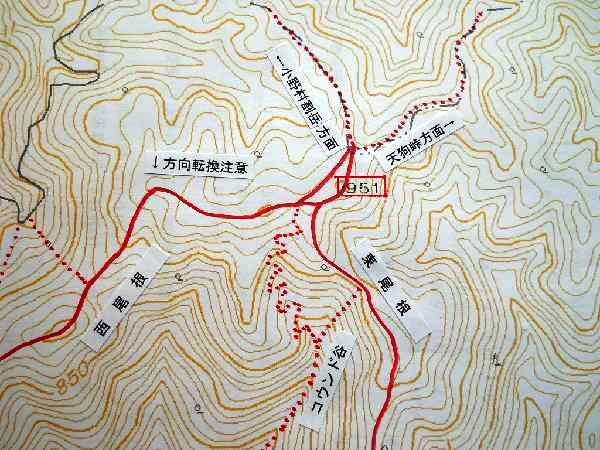 ←小野村割岳方面
天狗峠方面→
↓方向転換注意
951
西尾根
東尾根
コウンド谷
850